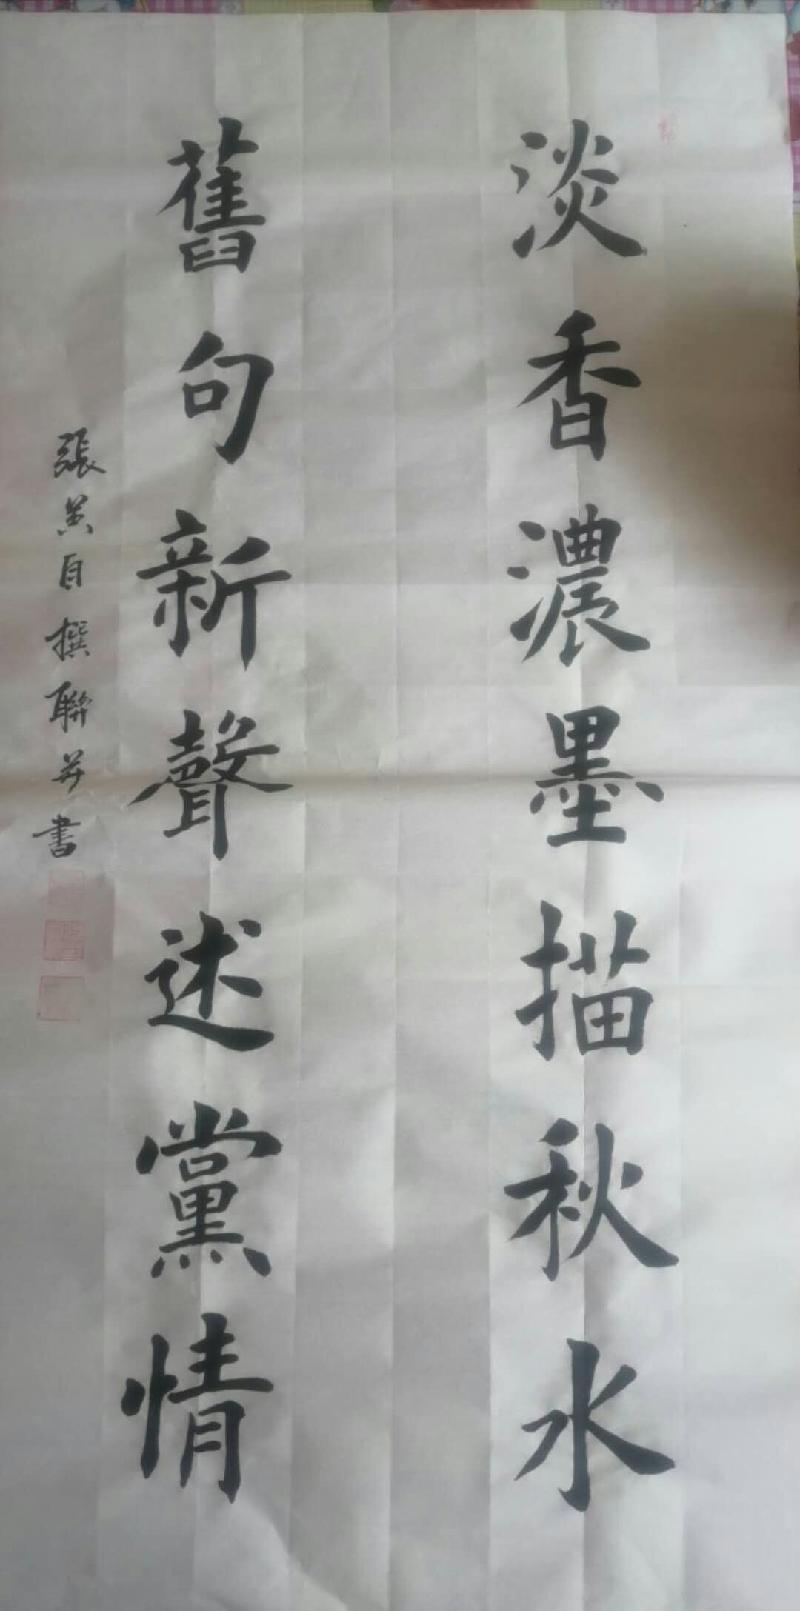 淡香濃墨描秋水
舊句新聲述黨情
張英自撰聯并書